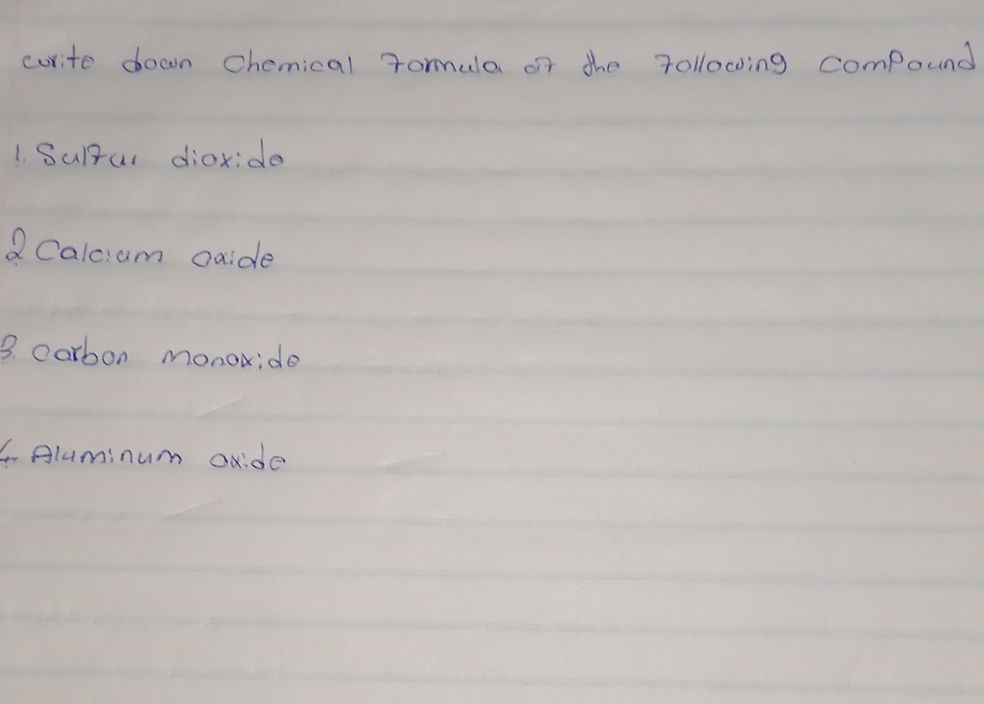 write down Chemical Formula of the Following Compound
1. Sulfur dioxide
2 Calcium oxide
3. Carbon Monoxide
4 Aluminum oxide